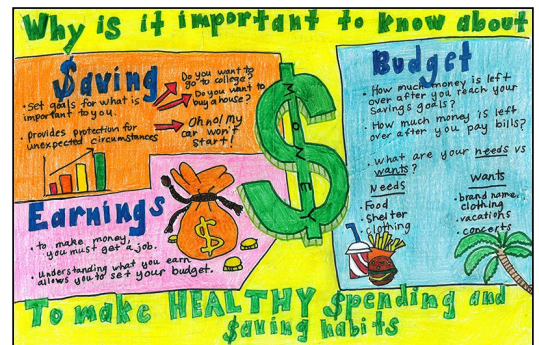 Why is it important to know about
$aving
• Set goals for what is
important to you.
• provides protection for
unexpected circumstances
Do you want to
go to college?
Do you want to
buy a house?
Oh no! My
car won't
start!
MONEY
Earnings
• to make money,
you must get a job.
• Understanding what you earn
allows you to set your budget.
$
Budget
• How much money is left
over after you reach your
savings goals?
• How much money is left
over after you pay bills?
• What are your needs vs
wants?
Needs
Food
Shelter
clothing
Wants
• brand name
clothing
• vacations
• concerts
To make HEALTHY $pending and
$aving habits